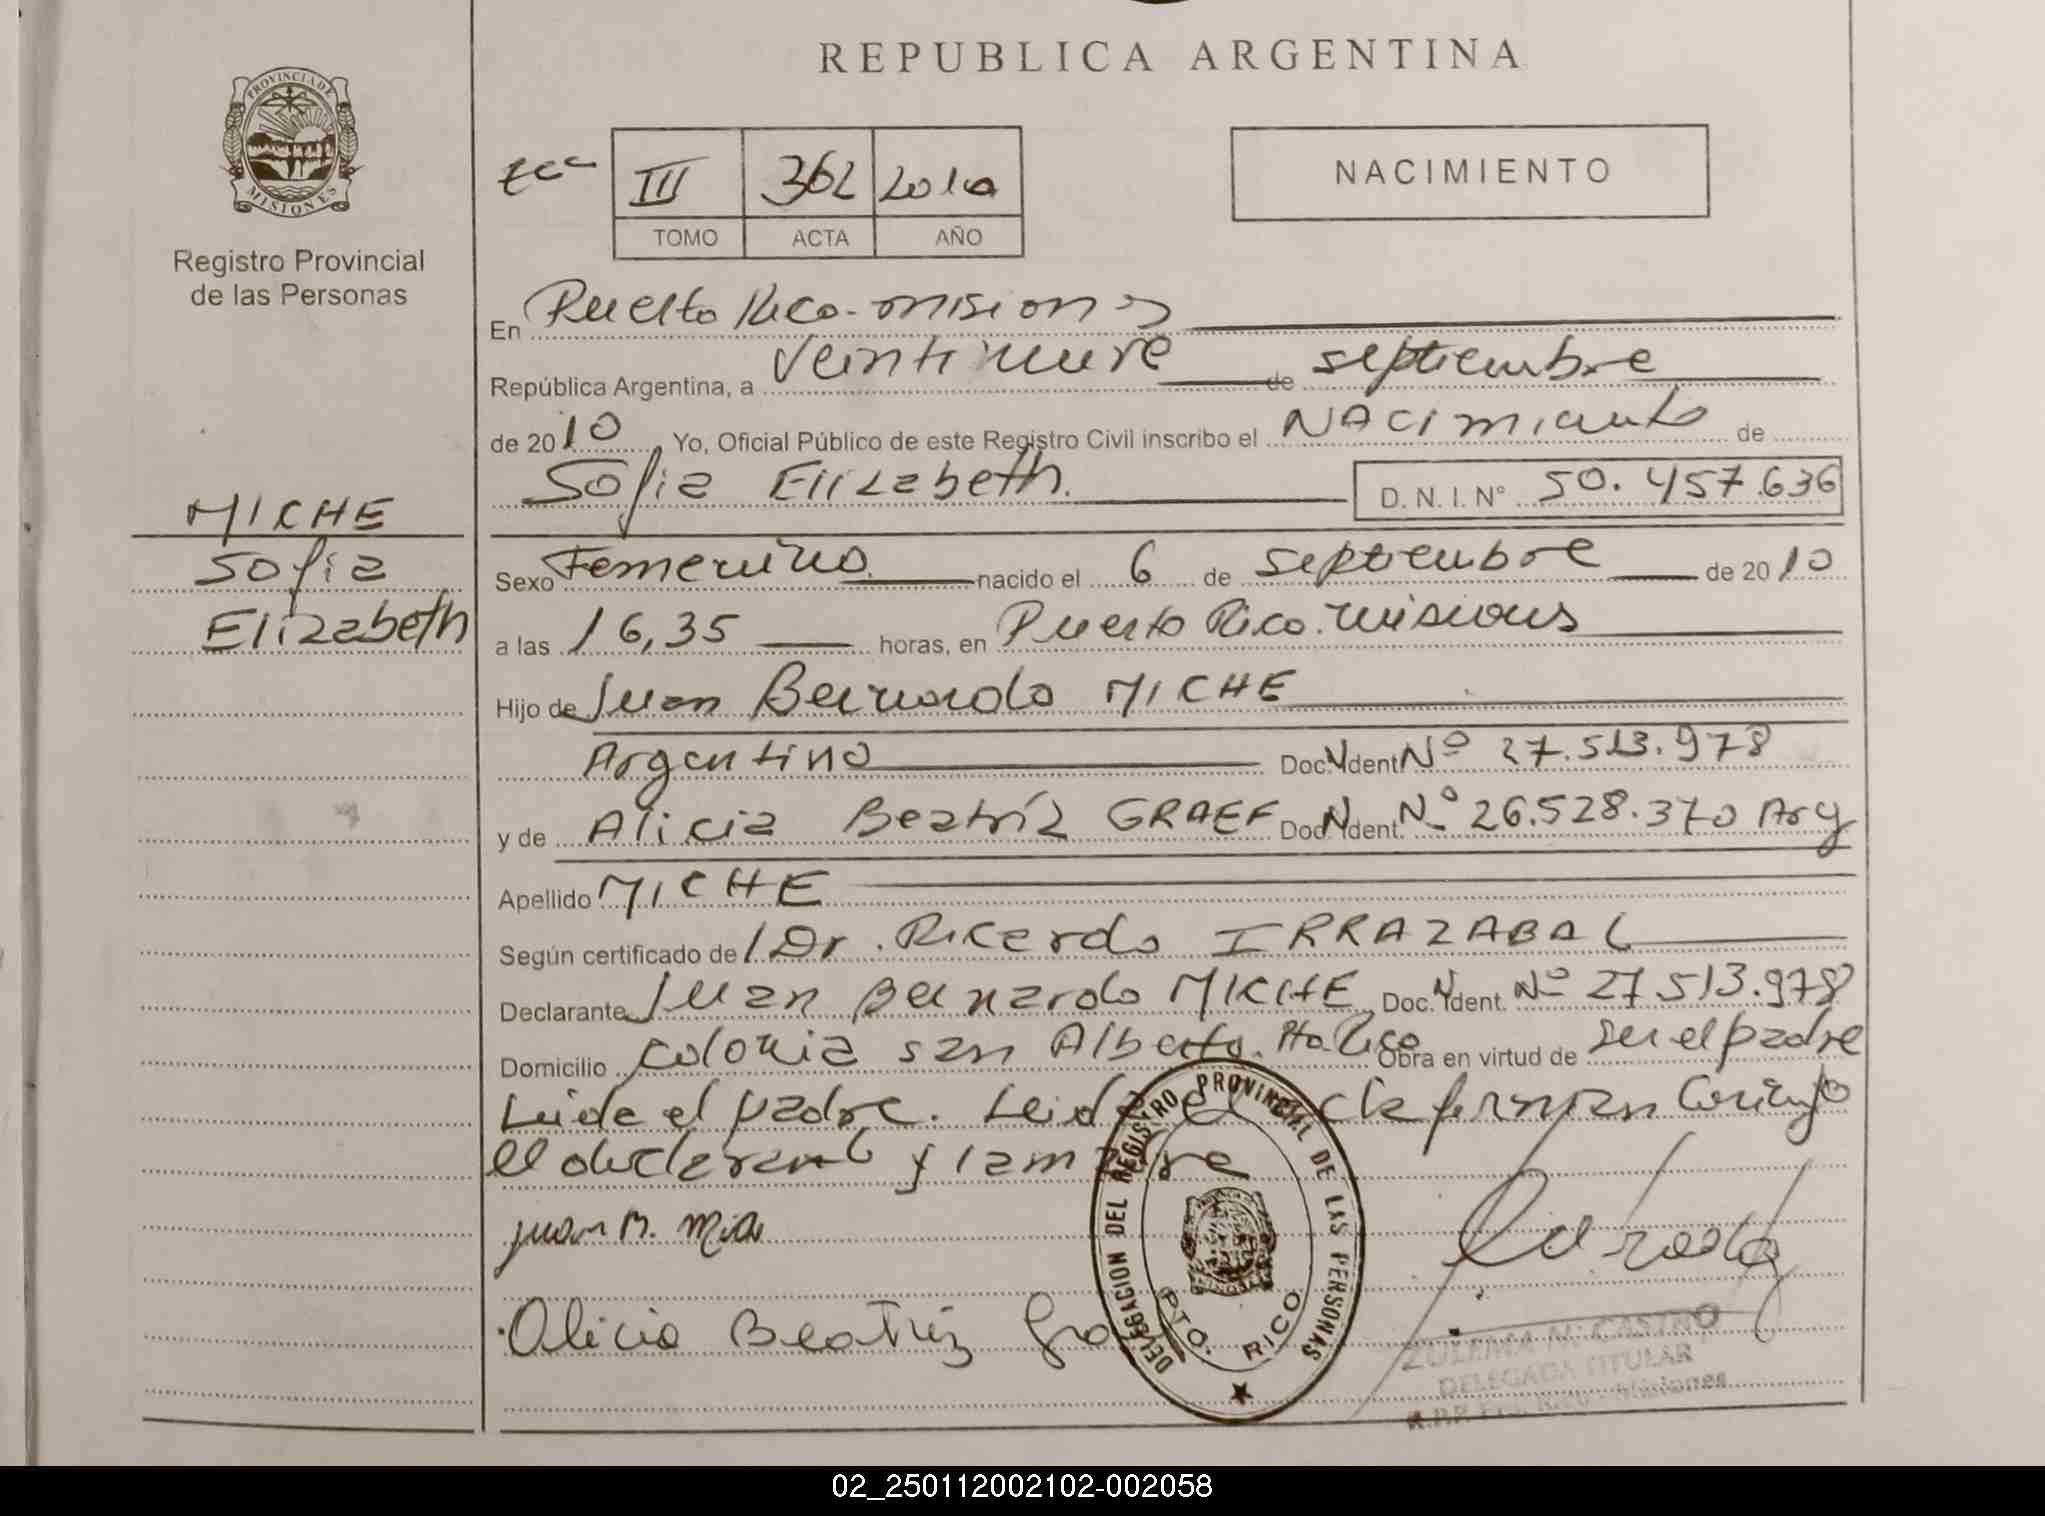 REPUBLICA ARGENTINA
PROVINCIA DE
MISIONES
Registro Provincial
de las Personas
III 362 2010
TOMO ACTA AÑO
NACIMIENTO
En Puerto Rico - misiones
República Argentina, a veintinueve de septiembre
de 2010 Yo, Oficial Público de este Registro Civil inscribo el NACimiento de
Sofia Elizabeth. D. N. I. N° 50.457.636
MICHE
Sofia
Elizabeth
Sexo Femenino nacido el 6 de septiembre de 2010
a las 16,35 horas, en Puerto Rico. misiones
Hijo de Juan Bernardo MICHE
Argentino Doc. Ident Nº 27.513.978
y de Alicia Beatríz GRAEF Doc. Ident. Nº 26.528.370 Arg
Apellido MICHE
Según certificado de Dr. Ricardo IRRAZABAL
Declarante Juan Bernardo MICHE Doc. Ident. Nº 27.513.978
Domicilio colonia san Alberto. Pto. Rico Obra en virtud de ser el padre
Leida el padre. Leida el acta firman conmigo
el declarante y la madre
Juan B.
Alicia Beatriz
DELEGACION DEL REGISTRO PROVINCIAL DE LAS PERSONAS
PTO. RICO
ZULEMA M. CASTRO
DELEGADA TITULAR
Misiones
02_250112002102-002058